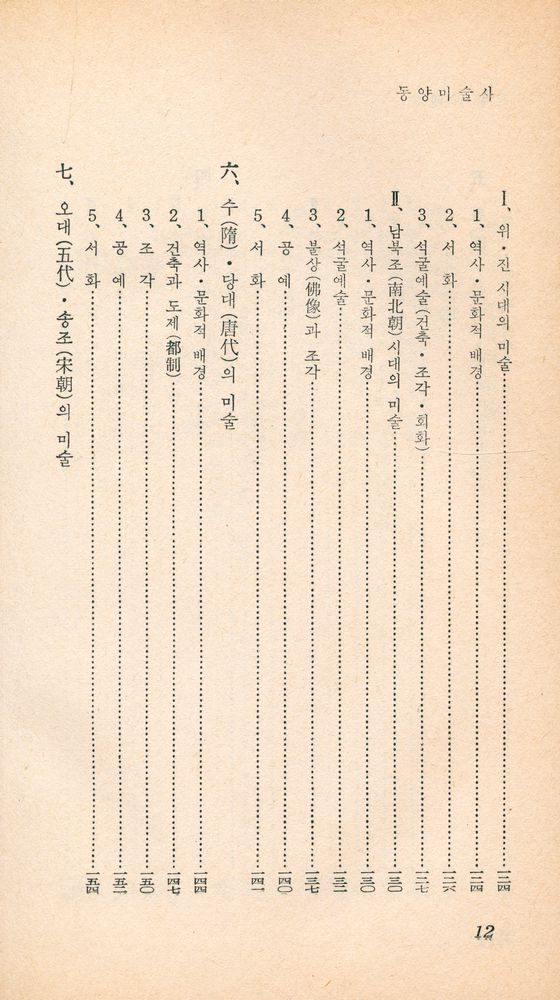 동양미술사
Ⅰ、위·진 시대의 미술 一二四
1、역사·문화적 배경 一二四
2、서 화 一二六
3、석굴예술(건축·조각·회화) 一二七
Ⅱ、남북조(南北朝)시대의 미술 一三〇
1、역사·문화적 배경 一三〇
2、석굴예술 一三二
3、불상(佛像)과 조각 一三七
4、공 예 一四〇
5、서 화 一四一
六、수(隋)·당대(唐代)의 미술
1、역사·문화적 배경 一四四
2、건축과 도제(都制) 一四七
3、조 각 一五〇
4、공 예 一五二
5、서 화 一五四
七、오대(五代)·송조(宋朝)의 미술
12